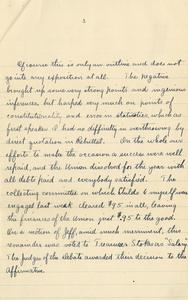 3
Of course this is only an outline and does not
go into any exposition at all. The negative
brought up some very strong points and ingenious
inferences, but harped very much on points of
constitutionality and error in statistics, which as
first speaker I had no difficulty in overthrowing by
direct quotation in Rebuttal. On the whole our
efforts to make the occasion a success were well
repaid, and the Union dissolved for the year with
all debts paid and everybody satisfied. The
collecting committee on which Childs & myself were
engaged last week cleared $95 in all, leaving
the finances of the Union just $95 to the good.
On a motion of Jeff, amid much merriment, this
remainder was voted to Treasurer Stokes as Salary.
The judges of the Debate awarded their decision to the
Affirmative.